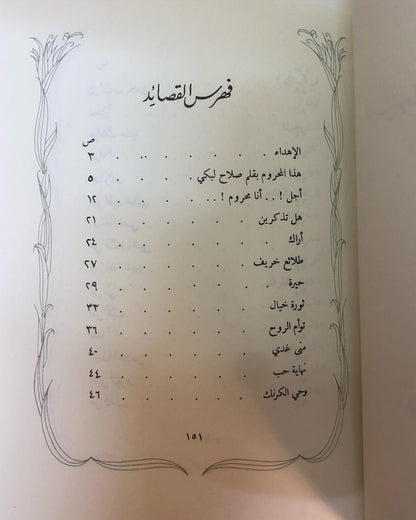 فهرس القصائد
ص
الإهداء . . . . .. . ٣
هذا المحروم بقلم صلاح لبكي . . . . ٥
أجل ! . . أنا محروم ! . . . . . ١٢
هل تذكرين . . . . . ٢١
أراك . . . . . . ٢٤
طلائع خريف . . . . . ٢٧
حيرة . . . . . . ٢٩
ثورة خيال . . . . . ٣٣
توأم الروح . . . . . ٣٦
منى غدي . . . . . ٤٠
نهاية حب . . . . . ٤٤
وحي الكرنك . . . . . ٤٦
١٥١